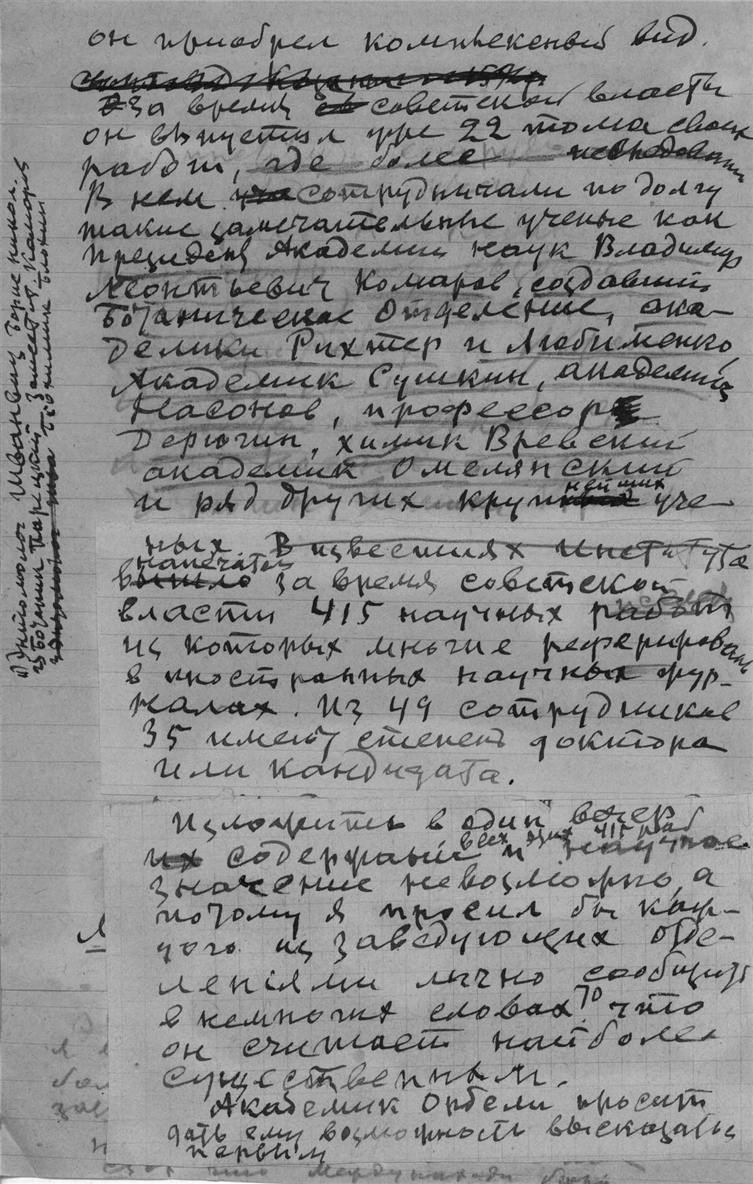 он приобрел комплексный вид.
За время советской власти
он выпустил уже 22 тома своих
работ, где более
В нем сотрудничали по долгу
такие замечательные ученые как
Президент Академии наук Владимир
Леонтьевич Комаров, создавший
Ботаническое Отделение, ака-
демики Рихтер и Любименко,
Академик Сушкин, академик
Насонов, профессор
Дерюгин, химик Вревский
академик Омелянский
и ряд других крупнейших уче-
ных. В известиях Института
напечатано за время советской
власти 415 научных работ
из которых многие реферированы
в иностранных научных жур-
налах. Из 49 сотрудников
35 имеют степень доктора
или кандидата.
Изложить в один вечер
всех этих 415 раб
содержание и научное
значение невозможно, а
потому я просил бы каж-
дого из заведующих отде-
лениями лично сообщить
в немногих словах то что
он считает наиболее
существенным.
Академик Орбели просит
дать ему возможность высказаться
первым
Энтомолог Иван
ботаник